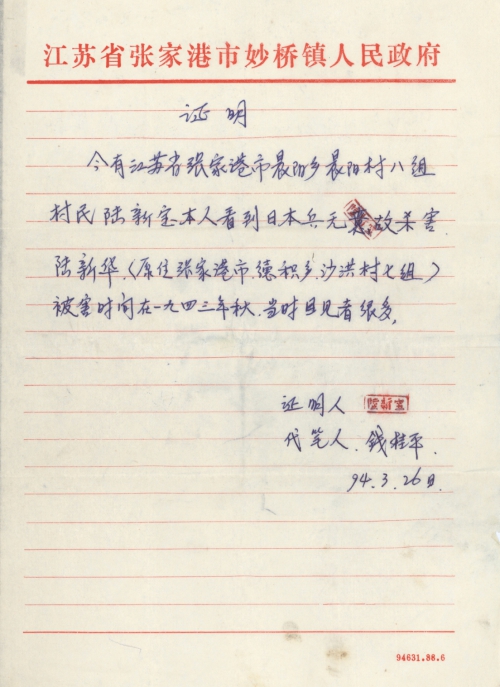 江苏省张家港市妙桥镇人民政府
证明
今有江苏省张家港市晨阳乡晨阳村八组
村民陆新宝本人看到日本兵无故杀害
陆新华（原住张家港市德积乡沙洪村七组）
被害时间在一九四三年秋、当时目见者很多。
证明人 陸新宝
代笔人、钱桂平
94.3.26日
94631.88.6